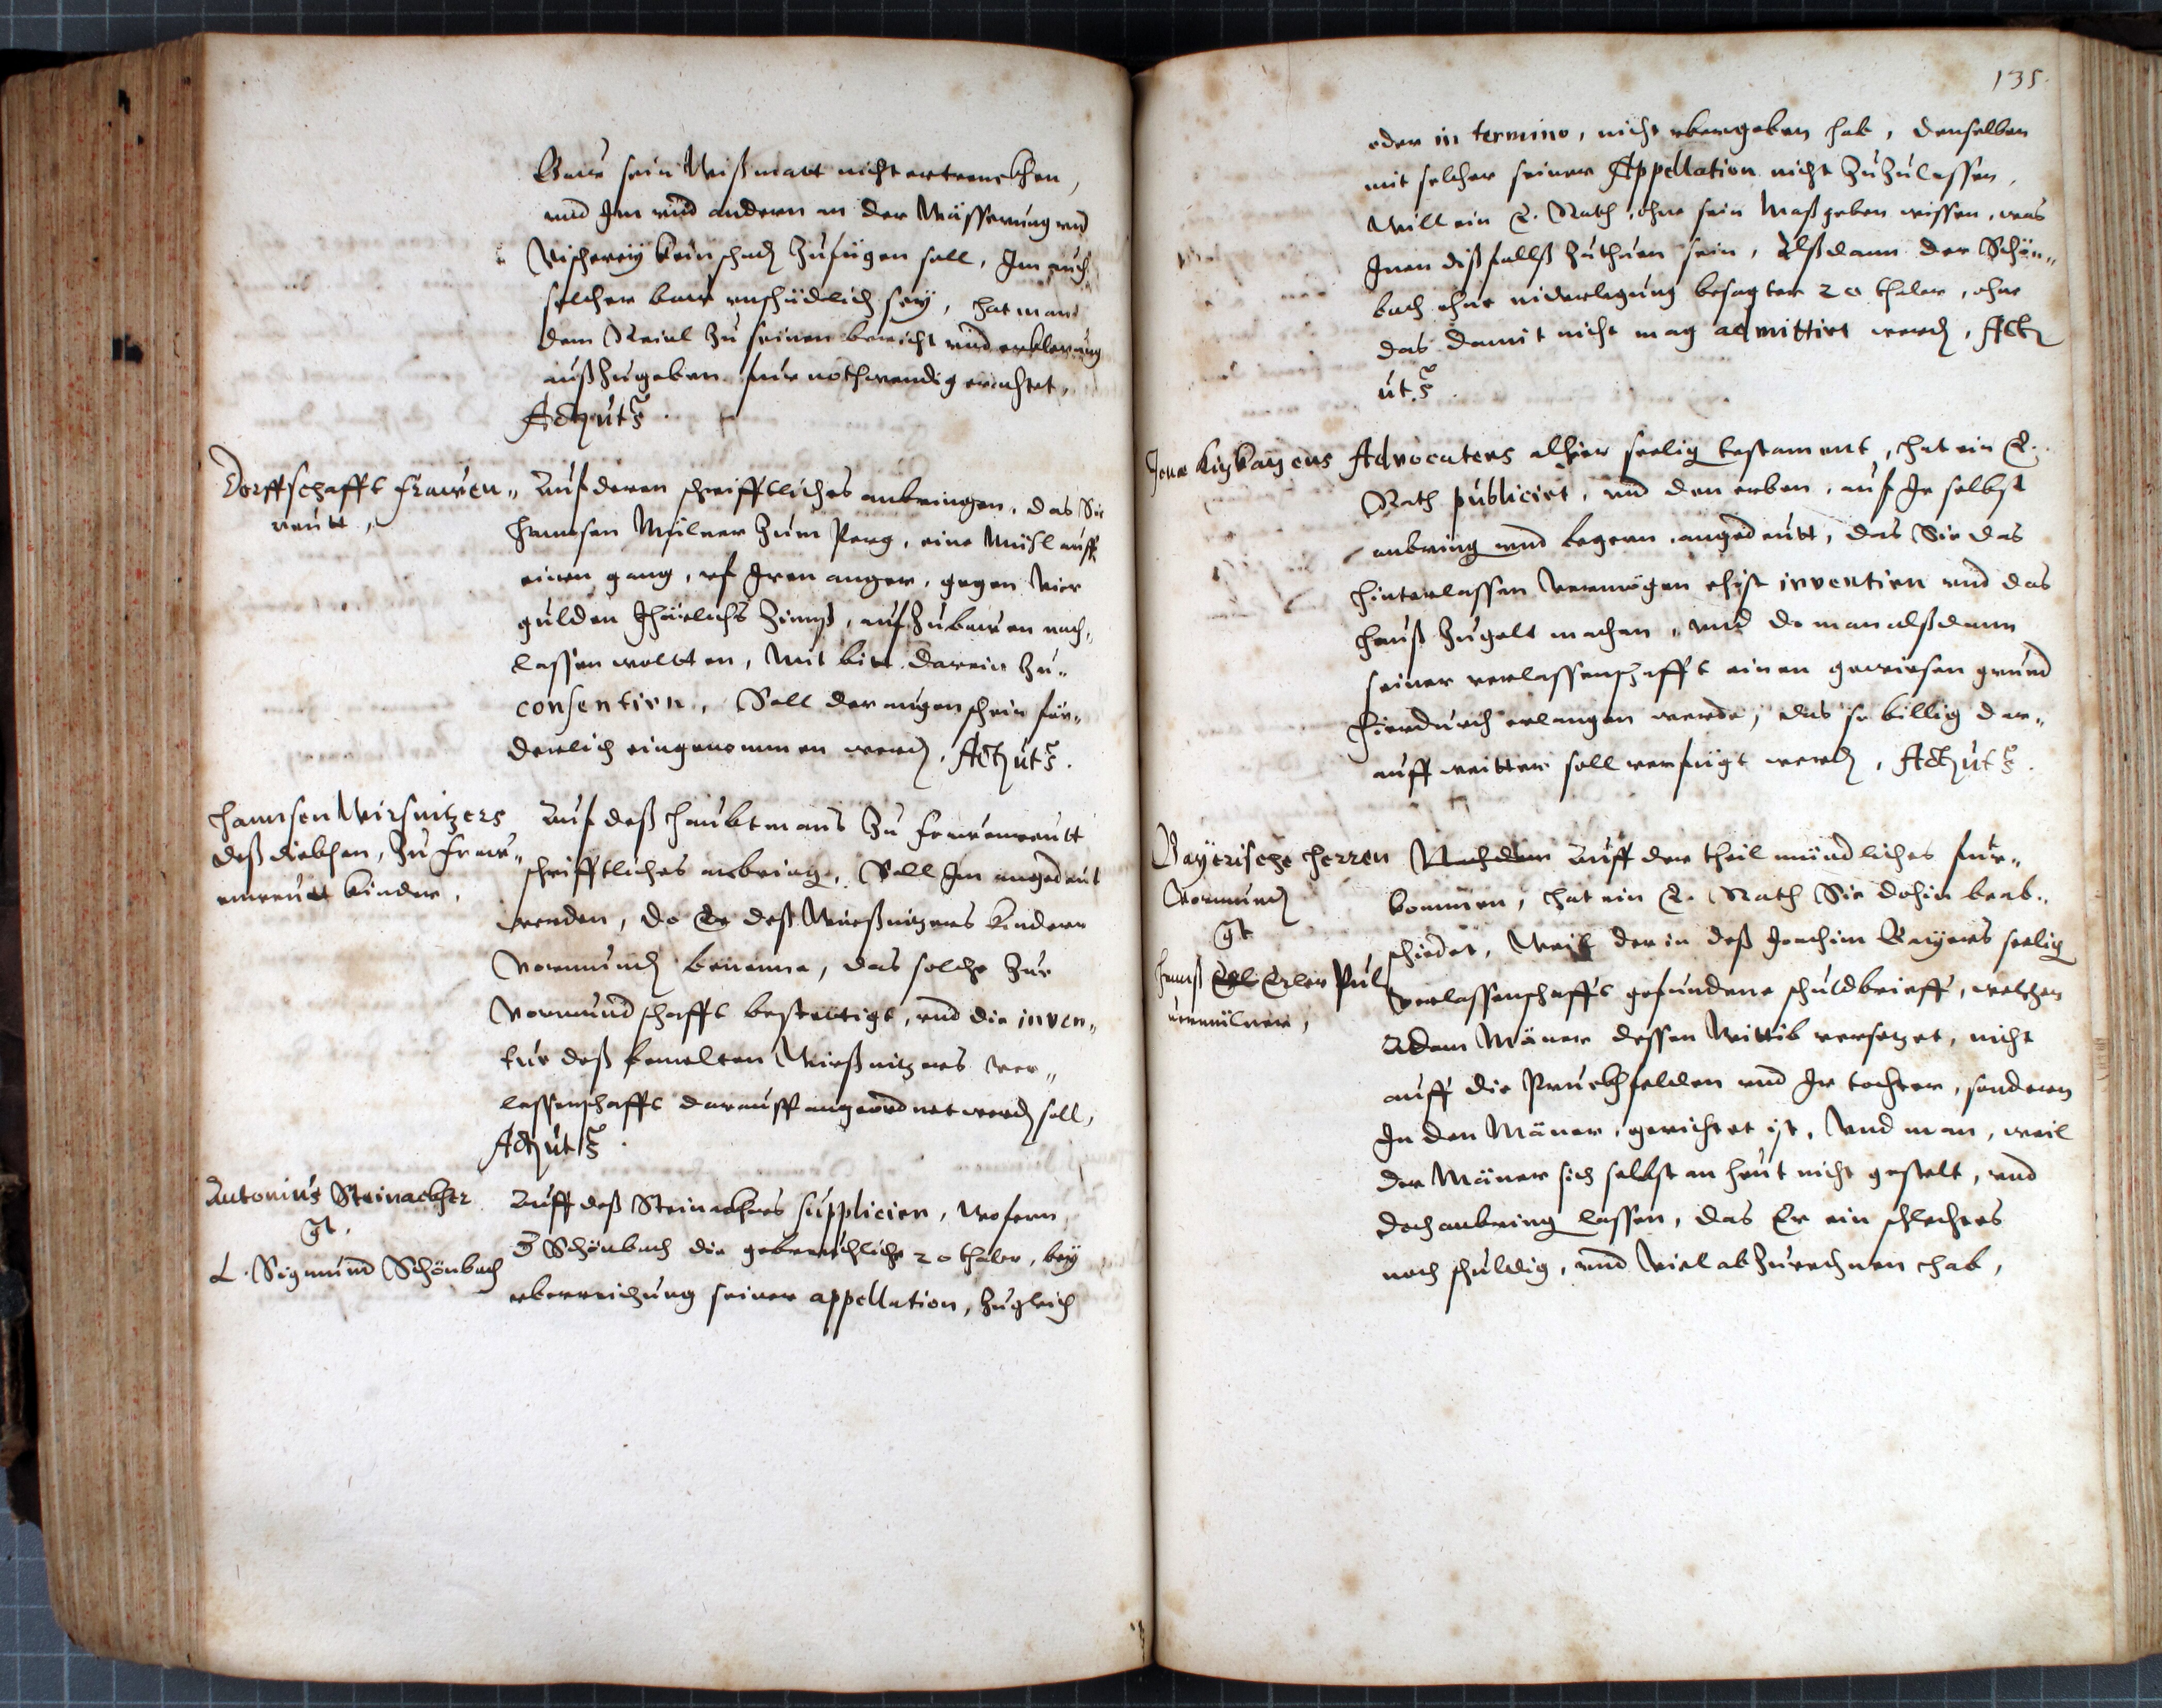 Baw sein Wißmatt nicht ertrenckhen,
vnd Im vnd andern an der Wässerung vnd
Vischereÿ kein schad zufügen soll, Im auch
solcher baw vnschädlich seÿ, hat man
dem Reinl zu seinen bericht vnd erklerung
außzugeben für nothwendig erachtet,
Act ut s.
Dorffschafft Frawen„
reutt,
Auf deren schrifftliches anbringen, das Sie
Hannsen Mülner zum Perg, eine Mühl auff
einen gang, vf Iren anger, gegen Vier
gulden Jhärlichs Zinnß, auf zubawen nach„
lassen woltten, Mit bitt darein zu„
consentirn, Soll der augenschein für„
derlich eingenommen werd, Act ut s.
Hannsen Wirsnitzers
deß diebhen, zu Fraw„
enreutt kinder,
Auf deß Haubtmans zu Frauenreutt
schrifftliches anbring, Soll Im angedeut
werden, do Er deß Wirßnitzers kindern
Vormund benenne, das solche zur
Vormundschafft bestettigt, vnd die inven„
tur deß bemelten Wirßnitzers ver„
lassenschafft darauff angeordnet werd soll,
Act ut s.
Antonius Steinackher
gt.
L. Sigmund Schönbach
Auff deß Steinackhers supplicirn, Wofern
D Schönbach die gebreuchliche 20 thaler, beÿ
vberreichung seiner appellation, zugleich
135.
oder in termino, nicht vbergeben hab, denselben
mit solcher seiner Appellation nicht zuzulassen,
Will ein E. Rath, ohne sein Maß geben wissen, was
Inen dißfallß zuthuen sein, Alßdann der Schön„
bach ohne niderlegung besagter 20 thaler, ohne
das damit nicht mag admittirt werd, Act
ut s.
Advocatens alhier seelig testament, hat ein E.
Rath publicirt, vnd den erben, auf Ir selbst
anbring vnd begern, angedeutt, das Sie das
hinterlassen Vermögen ehist inventirn vnd das
Hauß zugelt machen, vnd do man alßdann
seiner verlassenschafft einen gewiesen grund
hierdurch erlangen werde, das so billig dar„
auff weitter soll verfügt werd, Act ut s.
Bayerische Herren
Vormund
gt
Hannß Erl Erler Pul
uermülner,
Nachdem Auff der theil mündliches für„
kommen, hat ein E. Rath Sie dohin beab„
schiedet, Weil der in deß Joachim Bayers seelig
Verlassenschafft gefundene schuldbrieff, welchen
Adam Mäner dessen Wittib versetzet, nicht
auff die Pruckhfelden vnd Ir tochter, sondern
In den Mäner, gerichtet ist, Vnd man, weil
der Mäner sich selbst an heut nicht gestelt, vnd
doch anbring lassen, das Er ein schlechtes
noch schuldig, vnd Viel abzurechnen hab,